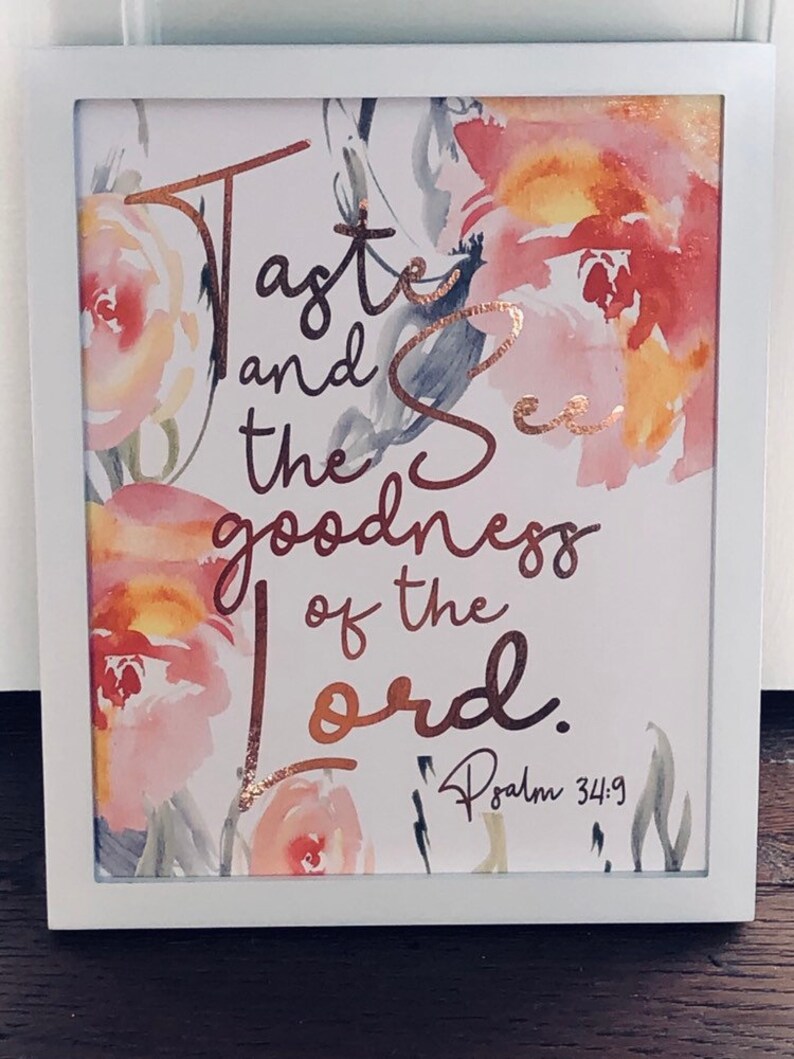 Taste
and See
the
goodness
of the
Lord.
Psalm 34:9